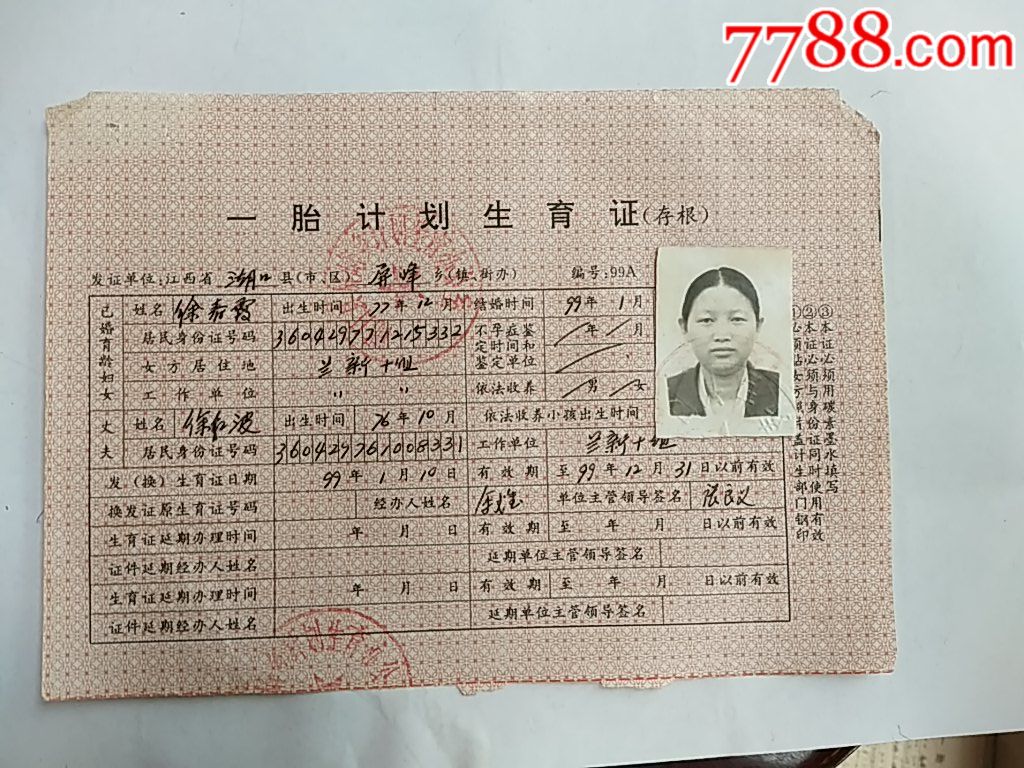 7788.com
一胎计划生育证(存根)
发证单位:江西省 湖口 县(市、区) 屏峰 乡(镇、街办) 编号:99A
已婚育龄妇女 姓名 徐春霞 出生时间 77年12月 结婚时间 99年1月
居民身份证号码 360429771215332 不孕症鉴定时间和鉴定单位 年 月
女方居住地 兰新十组
工作单位 〃 〃 依法收养 男 女
丈夫 姓名 徐 波 出生时间 76年10月 依法收养小孩出生时间
居民身份证号码 360429761008331 工作单位 兰新十组
发(换)生育证日期 99年1月10日 有效期 至99年12月31日以前有效
换发证原生育证号码 经办人姓名 单位主管领导签名 张良义
生育证延期办理时间 年 月 日 有效期 至 年 月 日以前有效
证件延期经办人姓名 延期单位主管领导签名
生育证延期办理时间 年 月 日 有效期 至 年 月 日以前有效
证件延期经办人姓名 延期单位主管领导签名
③本证必须用碳素墨水填写
②本证必须与身份证同时使用有效